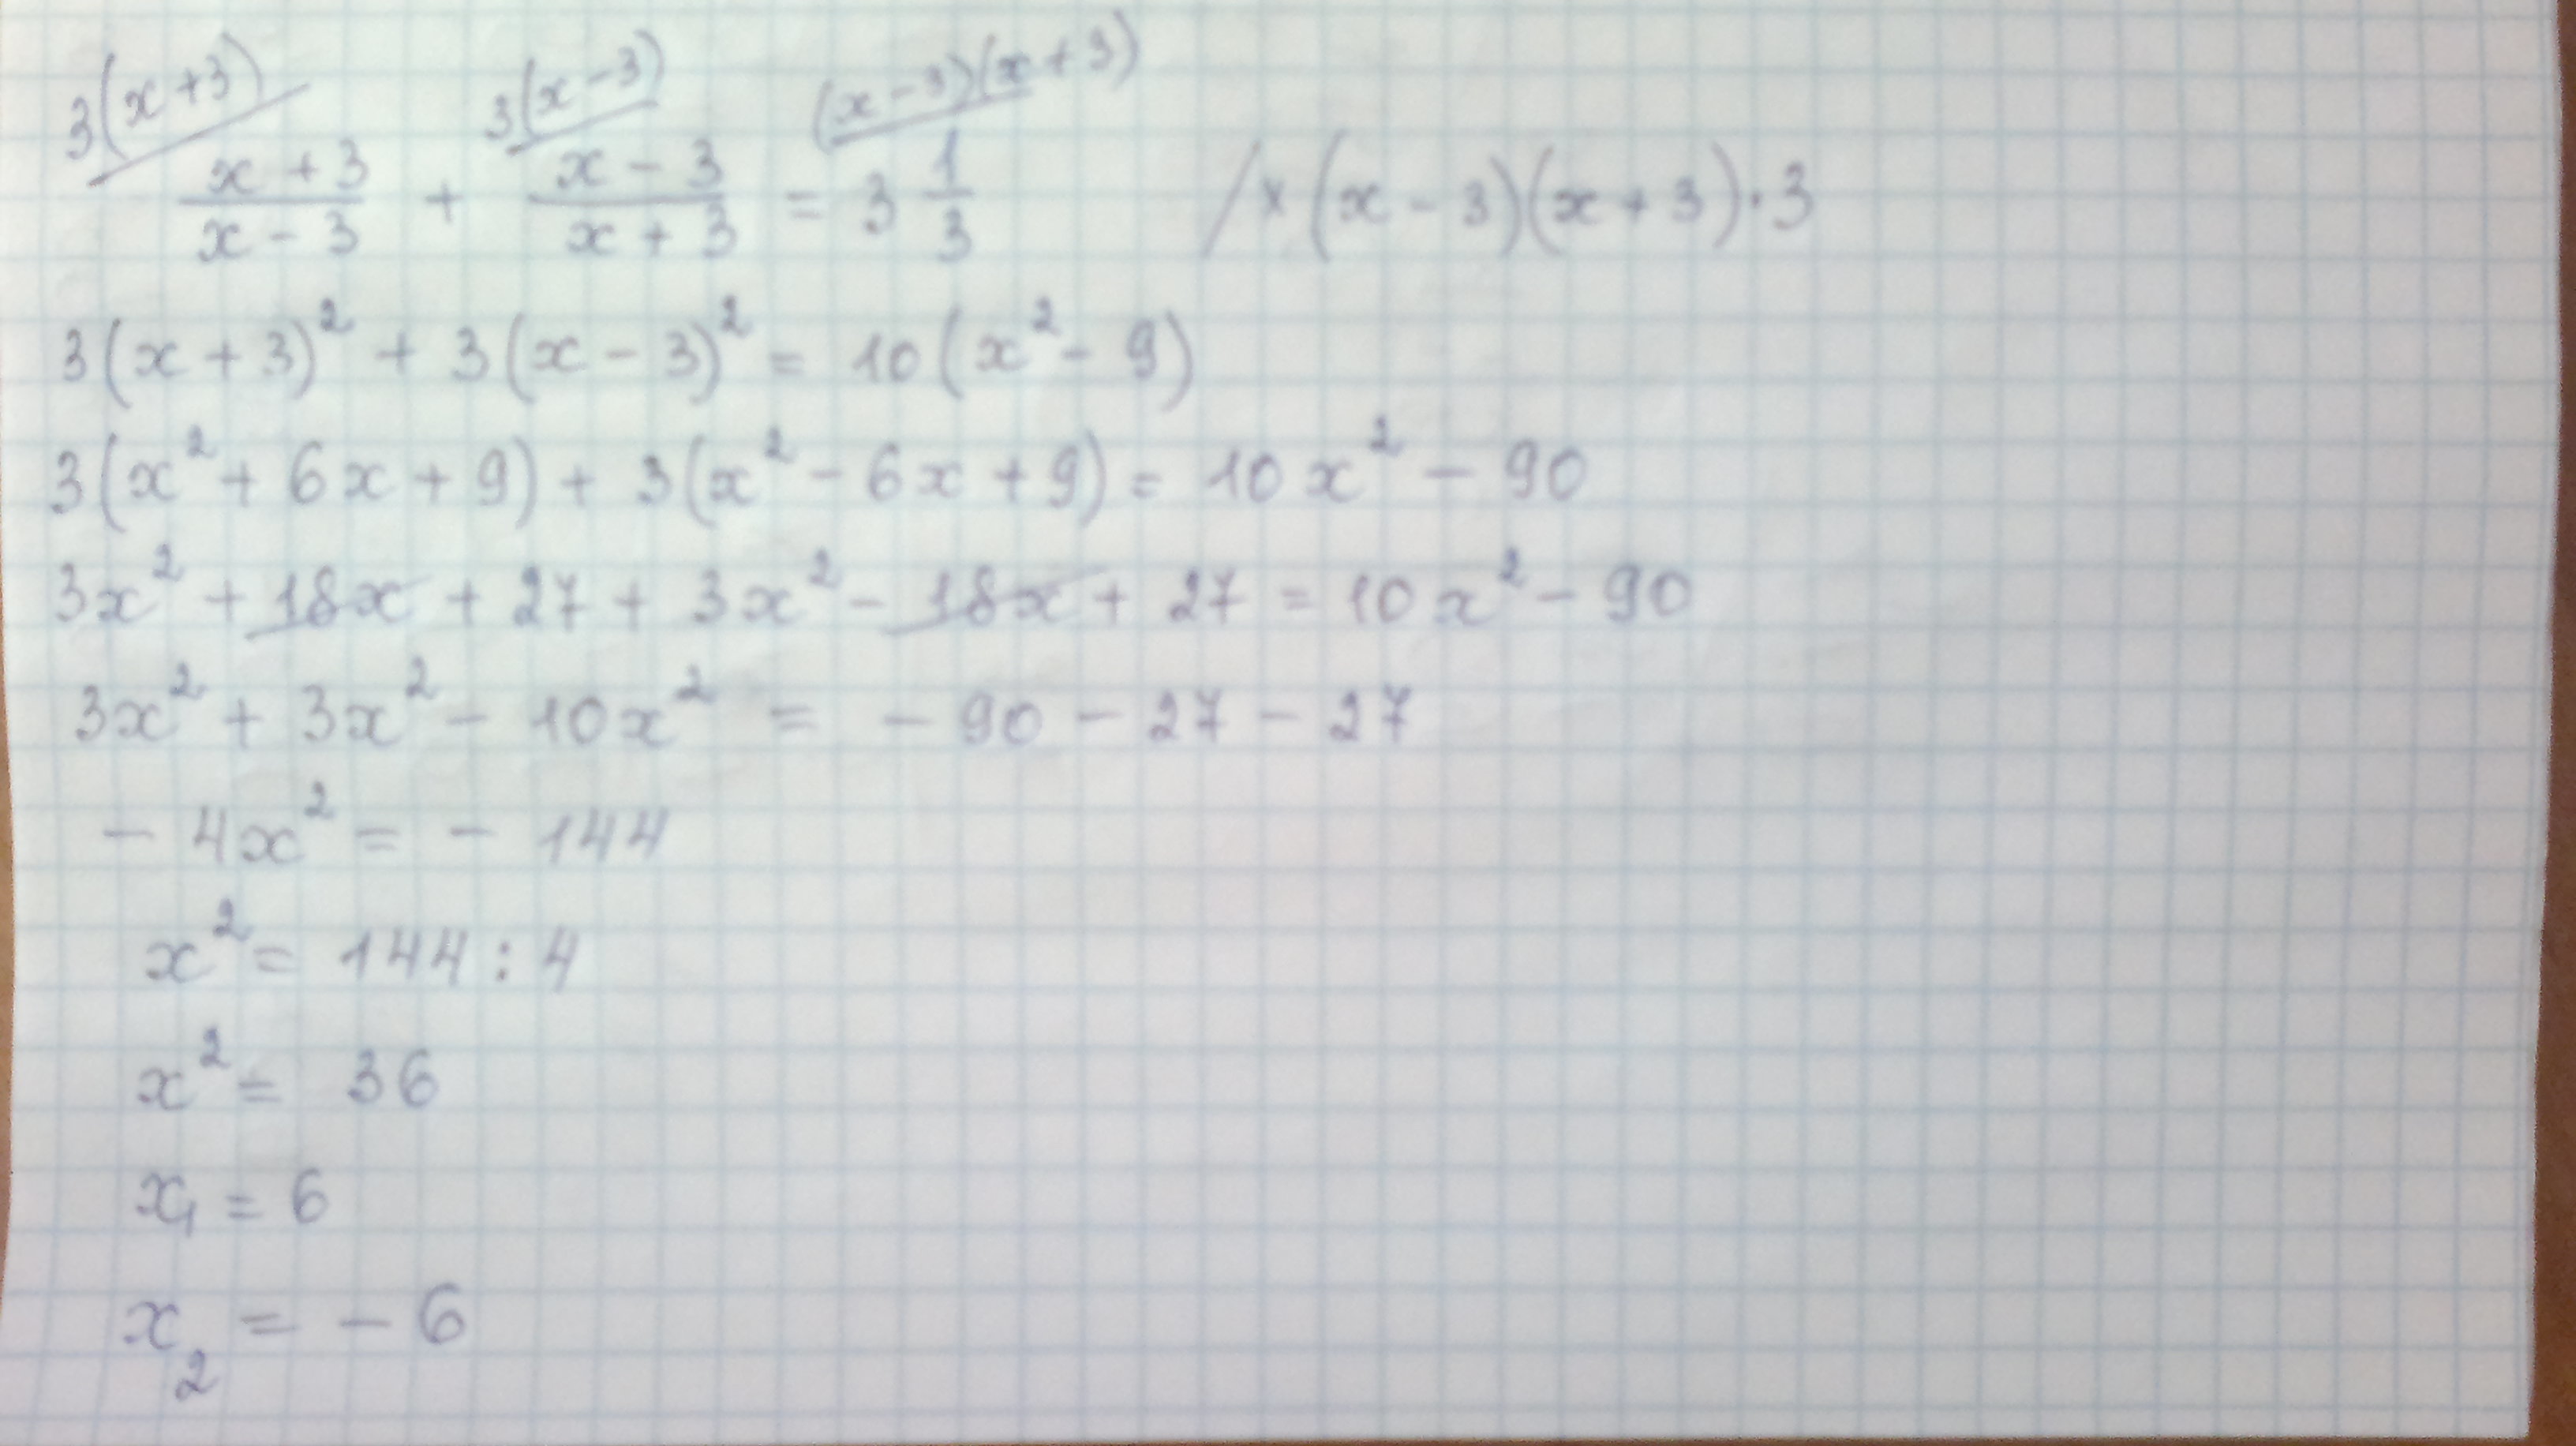 3(x+3) 3(x-3) (x-3)(x+3)
(x+3)/(x-3) + (x-3)/(x+3) = 3 1/3 /×(x-3)(x+3)·3
3(x+3)² + 3(x-3)² = 10(x²-9)
3(x²+6x+9) + 3(x²-6x+9) = 10x² - 90
3x² + 18x + 27 + 3x² - 18x + 27 = 10x² - 90
3x² + 3x² - 10x² = -90 - 27 - 27
-4x² = -144
x² = 144:4
x² = 36
x₁ = 6
x₂ = -6